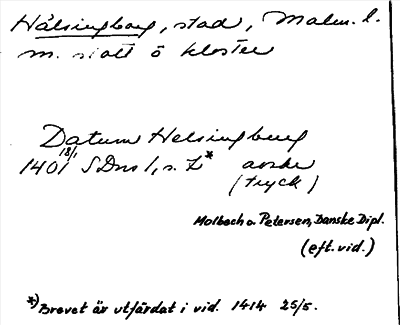 Hälsingborg, stad, Malm. l.
m. slott o kloster
Datum Helsingburg
1401 18/1 SDns 1, s. 2* avskr
(tryck)
Molbech o. Petersen, Danske Dipl.
(eft. vid.)
*) Brevet är utfärdat i vid. 1414 25/5.